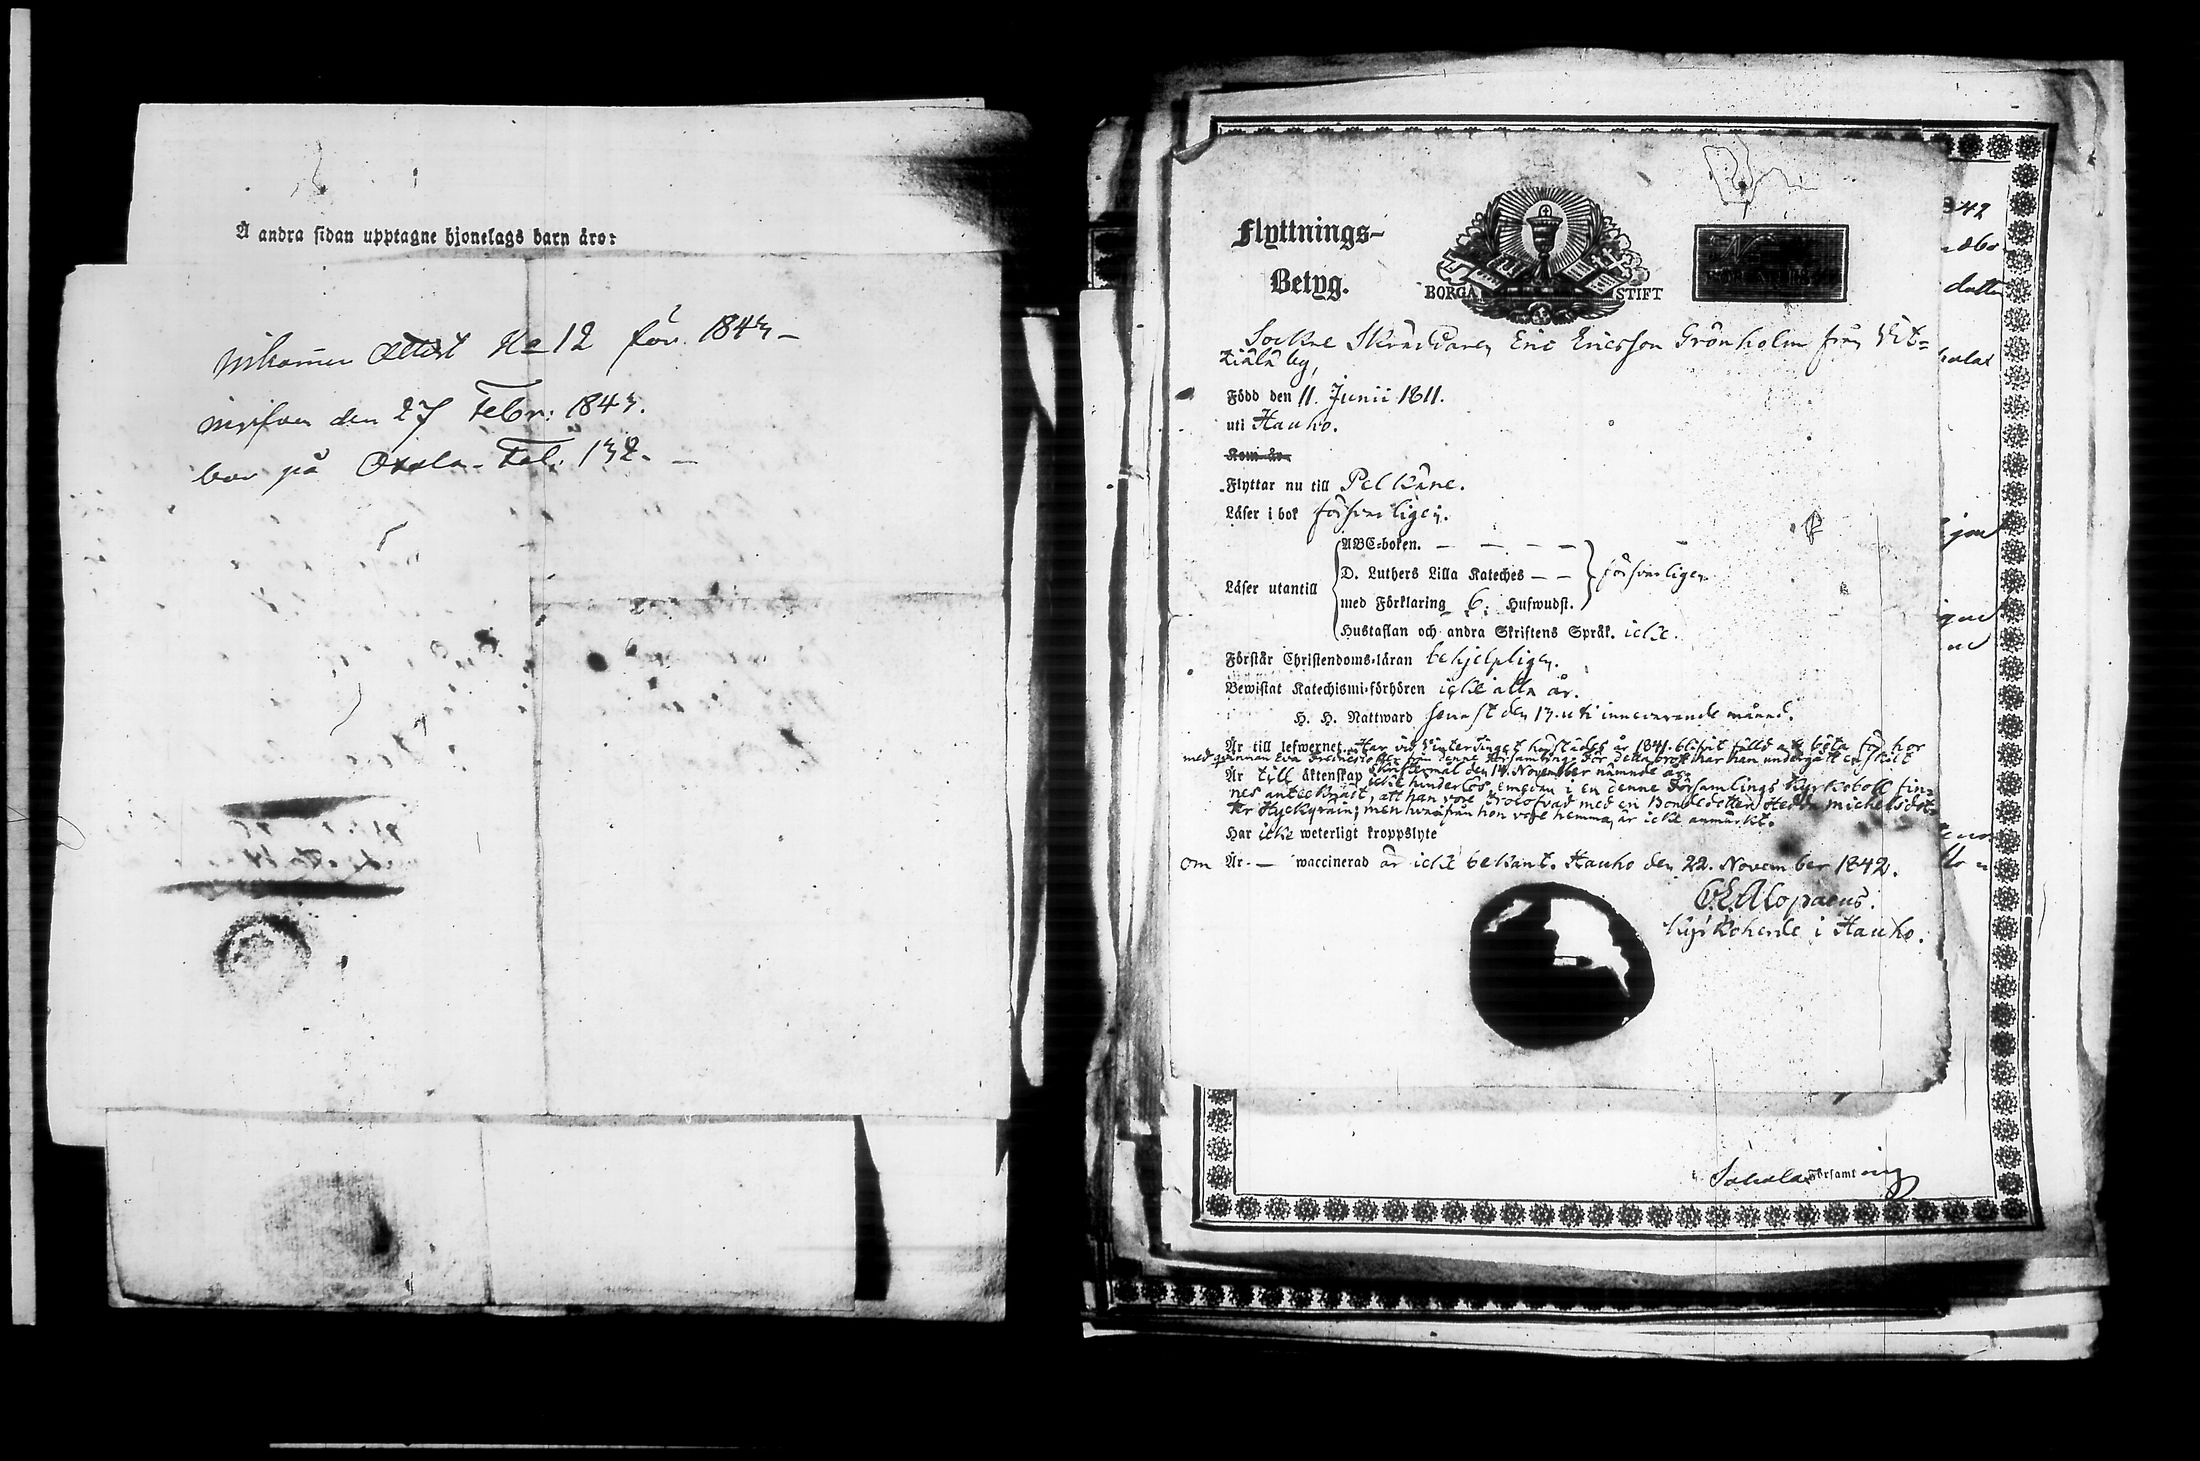 Å andra sidan upptagne hjonelags barn äro:
Inkommen Attest No 12 för 1843 –
inskrifven den 27 Febr: 1843.
bor på Fol: 132. –
Flyttnings-
Betyg.
BORGÅ STIFT
Sockne Skräddaren Eric Ericsson Grönholm från Vit=
tiälä by,
Född den 11. Junii 1811.
uti Hauho.
Kom år
Flyttar nu till Pelkäne.
Läser i bok försvarligen.
Läser utantill
ABC-boken. – – – –
D. Luthers Lilla Kateches – –
med Förklaring 6. Hufwudst.
försvarligen
Hustaflan och andra Skriftens Språk. icke.
Förstår Christendoms-läran behjelpligen.
Bewistat Katechismi-förhören icke alla år.
H. H. Nattward senast den 13. uti innevarande månad.
Är till lefwernet. Har vid Vintertinget härstädes år 1841. blifvit fälld att böta för hor
med qvinnan Eva Fredricsdotter från denne Församling. För detta brott har han undergått enskilt
skriftermål den 14. November nämnde år.
Är till äktenskap icke hinderlös, emedan i en denne Församlings Kyrkobok fin=
nes anteckna​dt, att han vore trolofvad med en Bondedotter Hedda Michelsdot=
ter men hvarifrån hon vore hemma, är icke anmärkt.
Har icke weterligt kroppslyte
om Är – waccinerad är icke bekant. Hauho den 22. November 1842.
Alopaeus.
Kyrkoherde i Hauho.
Församling